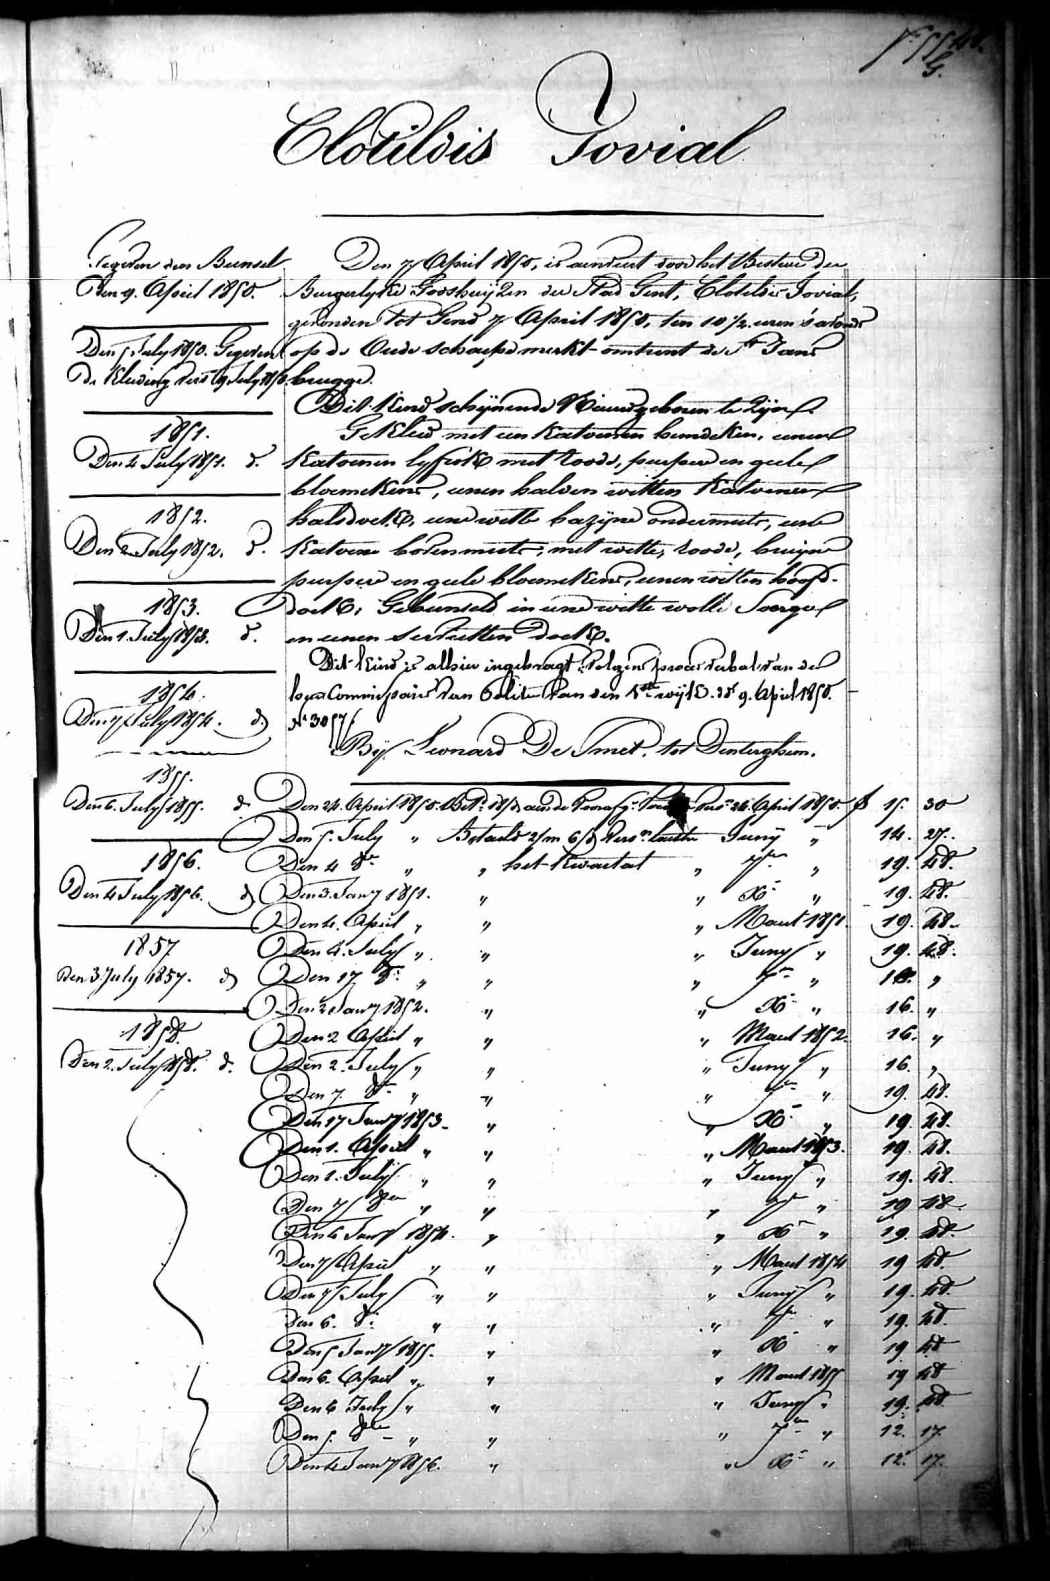 Clotildis Jovial
Gegeven den Bunsel
Den 9. April 1850.
Den 5 July 1850. Gegeven
de Kleeding
1851.
Den 4 July 1851. d.
1852.
Den 2 July 1852. d.
1853.
Den 1. July 1853. d.
1854.
Den 7 July 1854. d
1855.
Den 6. July 1855. d
1856.
Den 4 July 1856. d
1857
Den 3 July 1857. d
1858.
Den 2. July 1858. d.
Den 7 April 1850, is aenveert door het Bestuer der
Burgerlyke Godshuyzen der Stad Gent, Clotildis Jovial,
gevonden tot Gend 7 April 1850, ten 10 1/2 uren 's avonds
op de Oude schaepmerkt omtrent de St Jans
brugge.
Dit Kind schijnende Nieuwgeboren te Zijn
Gekleed met een Katoenen hemdeken, eenen
Katoenen lyfrok met roode, purper en geele
bloemekens, eenen halven witten Katoenen
halsdoek, eene witte bazijne ondermuts, eene
Katoene bovenmuts, met witte, roode, bruyne
purper en geele bloemekens, eenen witten hoofd-
doek, Gebunseld in eene witte wolle Saergie
en eenen servietten doek.
Dit kind is alhier ingebragt volgens proces verbael van den
Commissaris van Politie van den 1ste wijk dd. 9. April 1850.
N° 3057
Bij Leonard De Smet. tot Denterghem.
Den 24. April 1850. 26. April 1850. 15. 30
Den 5. July " Betaeld 2/m Juny " 14. 27.
Den 4 8e " " het Kwartael " 7e " 19. 48.
Den 3. Jany 1851. " " X " 19. 48.
Den 4. April " " " Maert 1851 19. 48.
Den 4. July " " " Juny " 19. 48.
Den 17 8e " " " 7e " 16. "
Den 2 Jany 1852. " " X " 16. "
Den 2 April " " " Maert 1852. 16. "
Den 2. July " " " Juny " 16. "
Den 7. 8e " " " 7e " 19. 48.
Den 17 Jany 1853. " " X " 19. 48.
Den 1. April " " " Maert 1853. 19. 48.
Den 1. July " " " Juny " 19. 48.
Den 7 8e " " " 7e " 19 48.
Den 6 Jany 1854. " " X " 19. 48.
Den 7 April " " " Maert 1854 19 48.
Den 7 July " " " Juny " 19. 48.
Den 6. 8e " " " 7e " 19. 48.
Den 5 Jany 1855. " " X " 19 48
Den 6. April " " " Maert 1855 19 48
Den 6 July " " " Juny " 19. 48.
Den 5. 8e " " " 7e " 12. 17.
Den 4 Jany 1856. " " X " 12. 17.